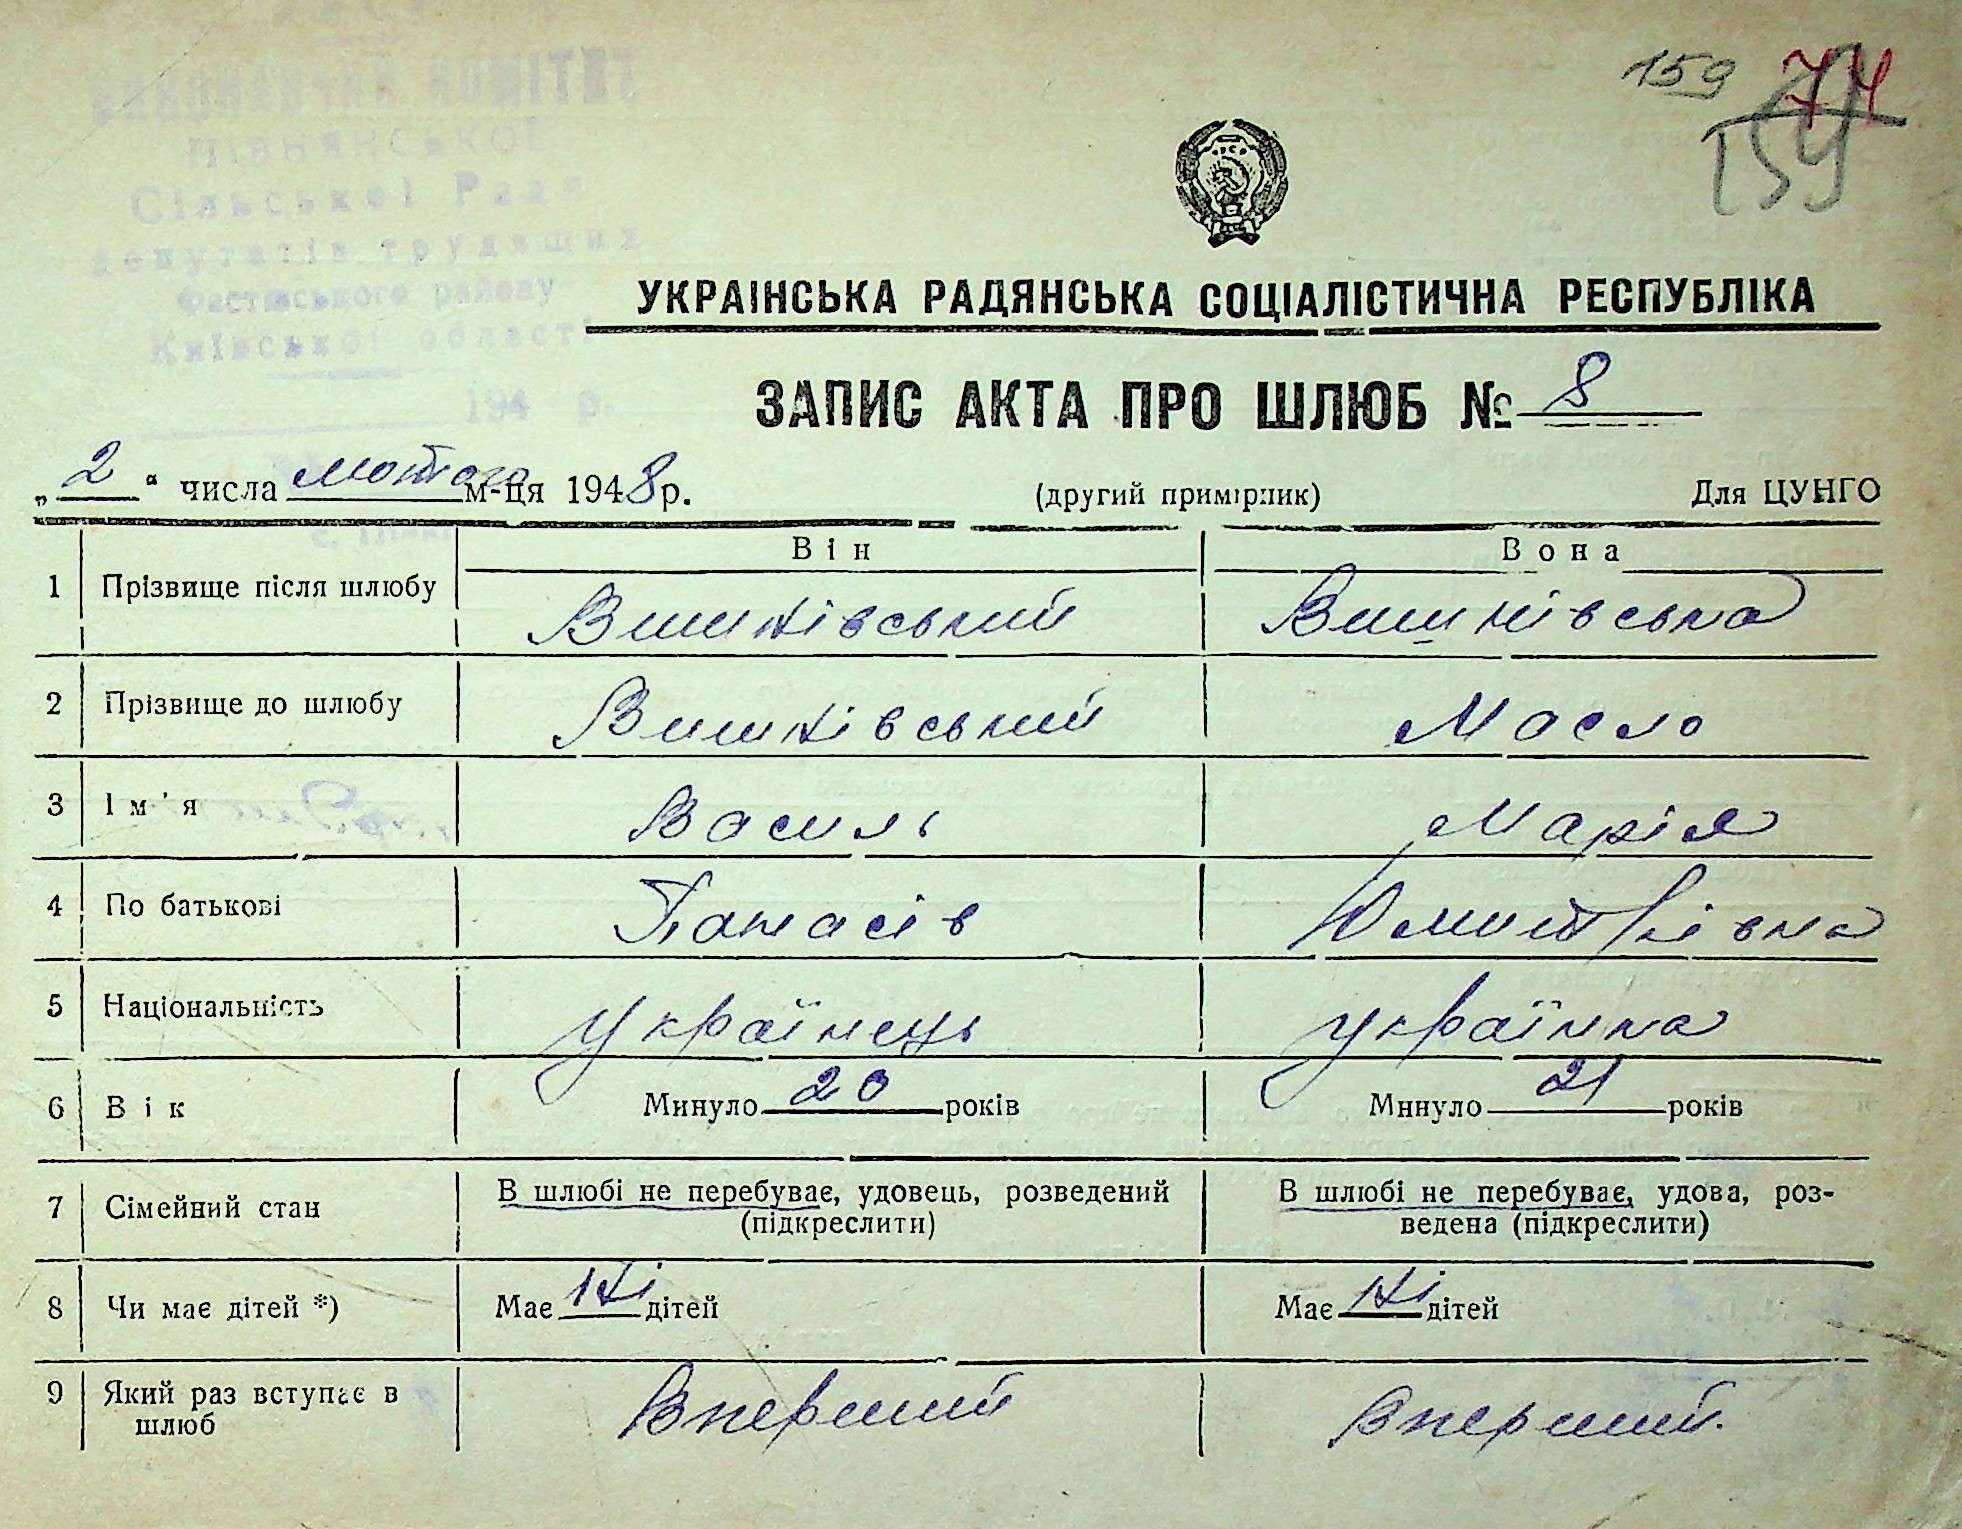 ВИКОНАВЧИЙ КОМІТЕТ
ПІВНЯНСЬКОЇ
Сільської Ради
депутатів трудящих
Фастівського району
Київської області
194 р.
159 74
159
УКРАЇНСЬКА РАДЯНСЬКА СОЦІАЛІСТИЧНА РЕСПУБЛІКА
ЗАПИС АКТА ПРО ШЛЮБ № 8
„2“ числа лютого м-ця 1948 р. (другий примірник) Для ЦУНГО
Він Вона
1 Прізвище після шлюбу Вишнівський Вишнівська
2 Прізвище до шлюбу Вишнівський Масло
3 Ім'я Василь Марія
4 По батькові Панасів Дмитрівна
5 Національність українець українка
6 Вік Минуло 20 років Минуло 21 років
7 Сімейний стан В шлюбі не перебуває, удовець, розведений (підкреслити) В шлюбі не перебуває, удова, роз-
ведена (підкреслити)
8 Чи має дітей *) Має ні дітей Має ні дітей
9 Який раз вступає в шлюб Вперший Вперший.